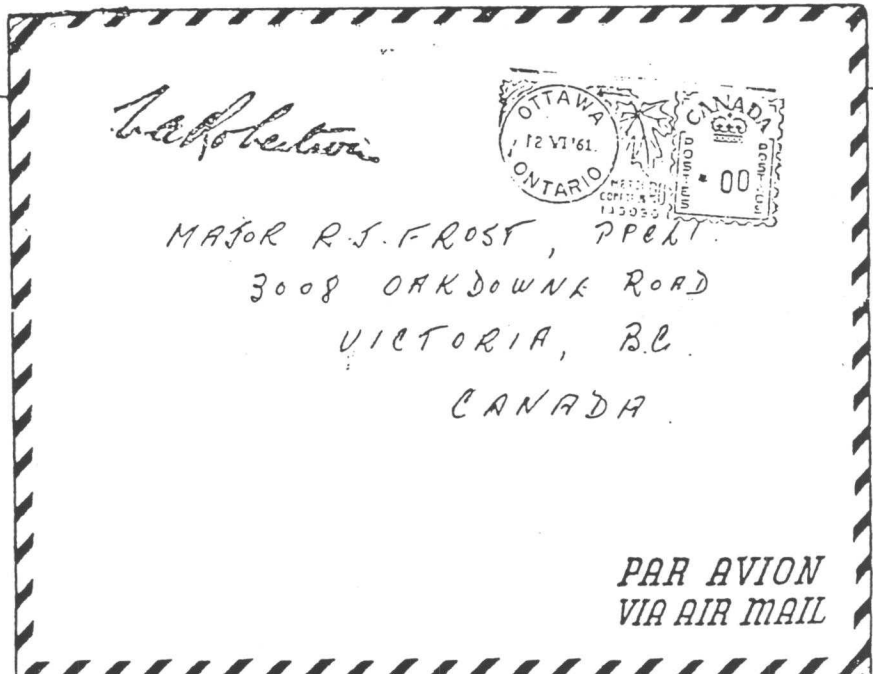 Robertson
OTTAWA
12 VI '61.
ONTARIO
CANADA
POSTES
00
POSTAGE
MAJOR R.J. FROST, PPCLI.
3008 OAKDOWNE ROAD
VICTORIA, B.C.
CANADA
PAR AVION
VIA AIR MAIL